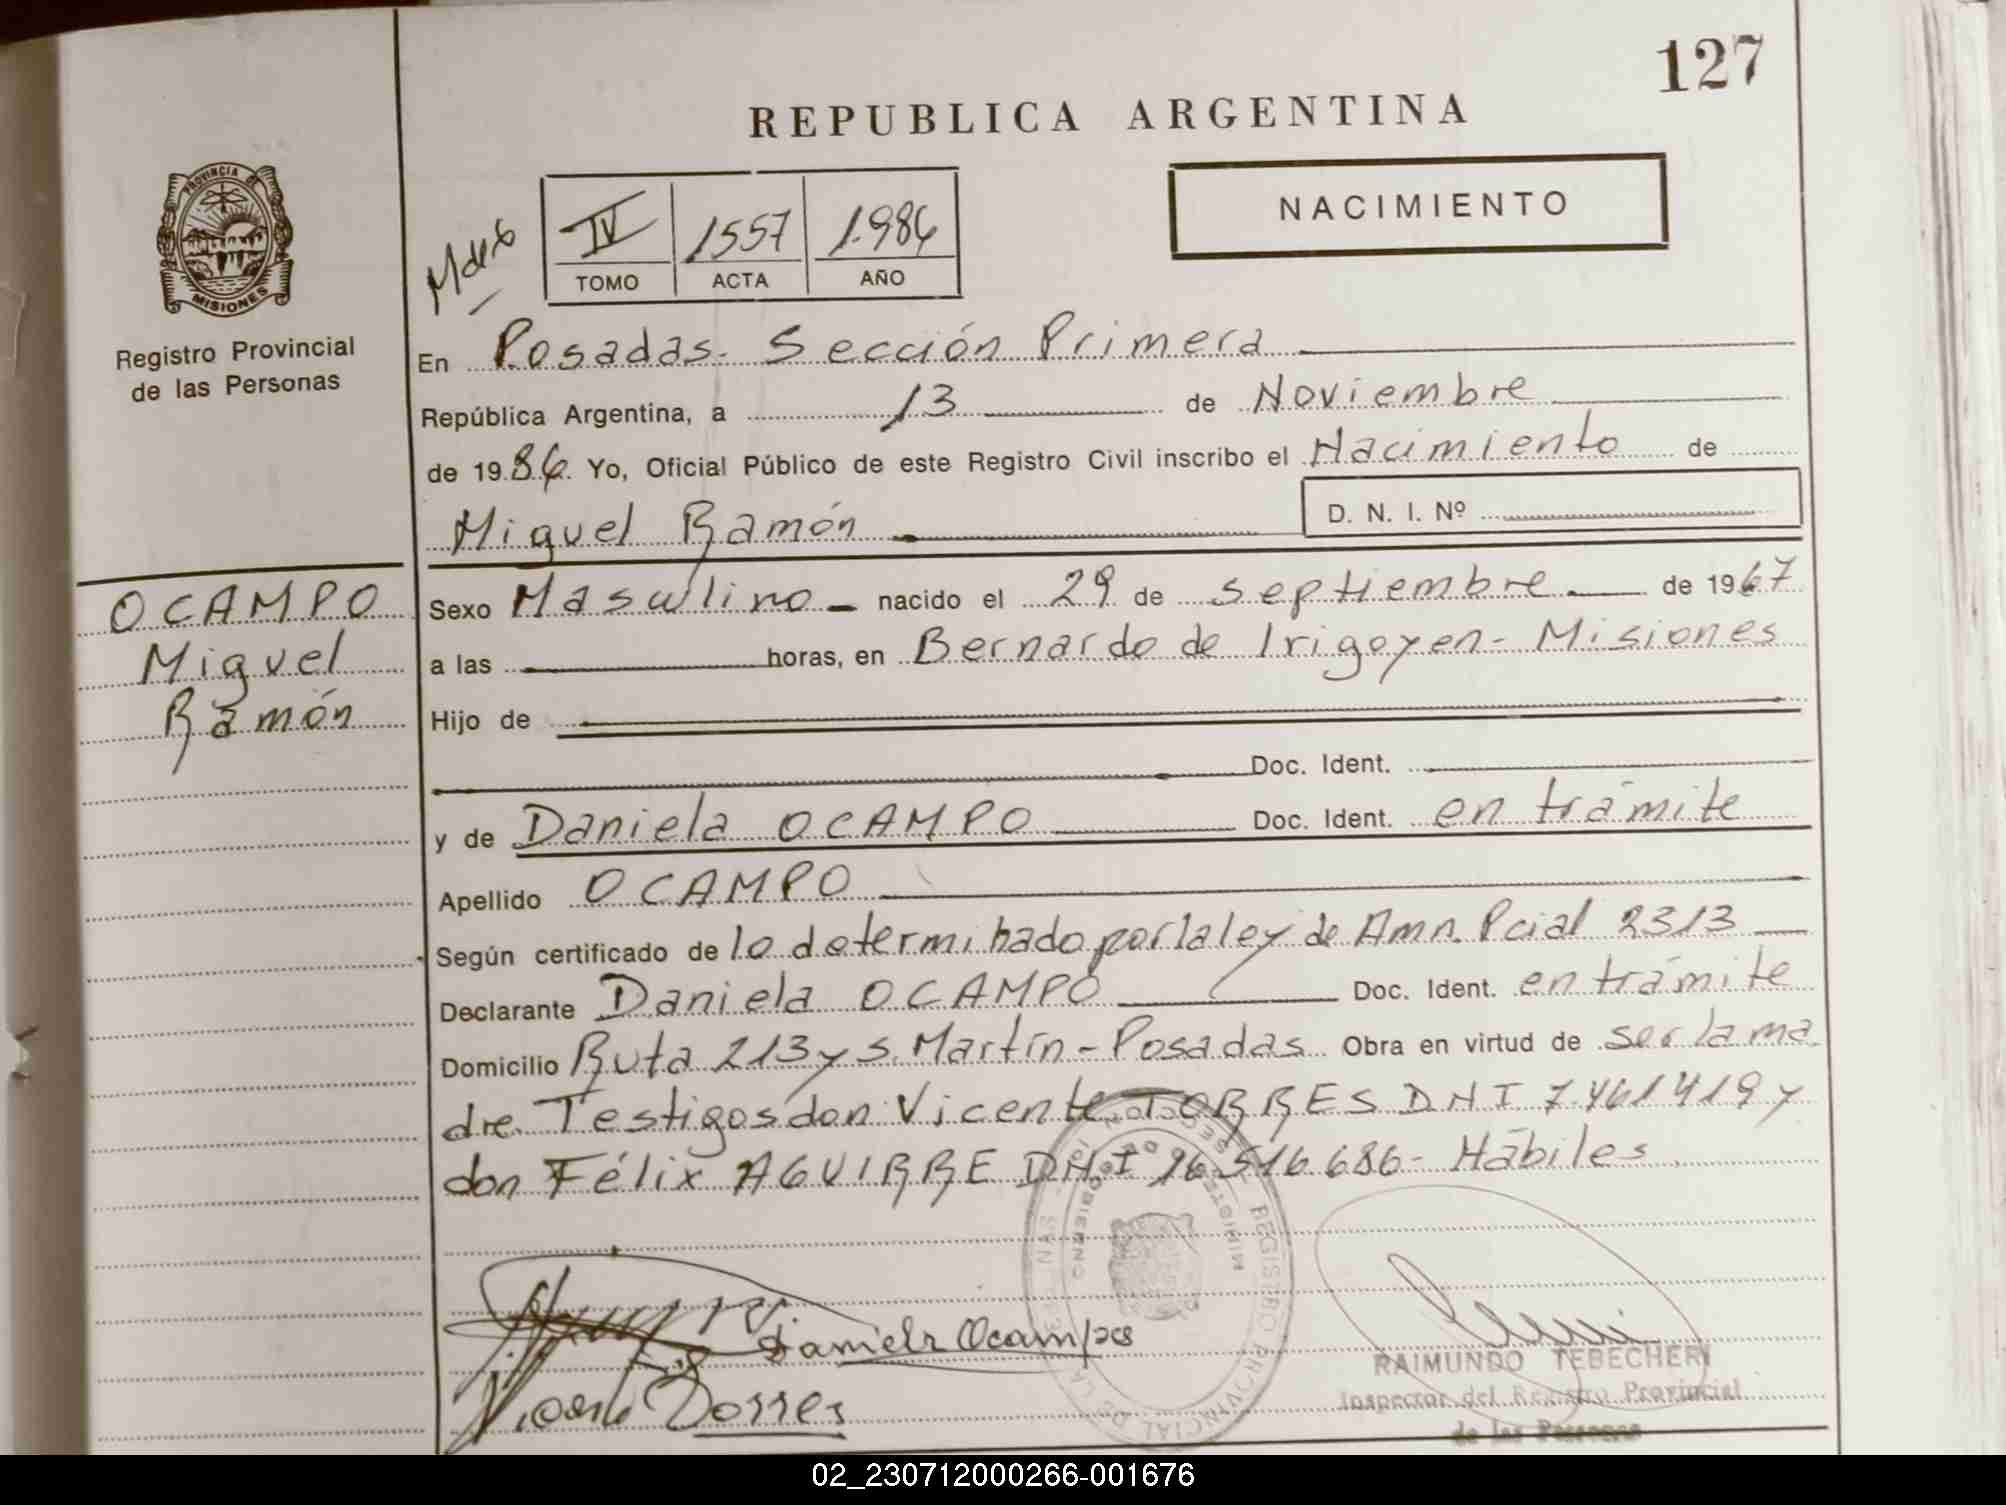 127
REPUBLICA ARGENTINA
PROVINCIA DE
MISIONES
Registro Provincial
de las Personas
IV 1557 1.986
TOMO ACTA AÑO
NACIMIENTO
En Posadas. Sección Primera
República Argentina, a 13 de Noviembre
de 1986. Yo, Oficial Público de este Registro Civil inscribo el Nacimiento de
D. N. I. Nº
Miguel Ramón
OCAMPO
Miguel
Ramón
Sexo Masculino nacido el 29 de septiembre de 1967
a las horas, en Bernardo de Irigoyen - Misiones
Hijo de
Doc. Ident.
y de Daniela OCAMPO Doc. Ident. en trámite
Apellido OCAMPO
Según certificado de lo determinado por la ley de Amn. Pcial 2313
Declarante Daniela OCAMPO Doc. Ident. en trámite
Domicilio Ruta 213 y S. Martín - Posadas Obra en virtud de ser la ma
dre. Testigos don Vicente TORRES DNI 7.461419 y
don Félix AGUIRRE DNI 16.516.686 - Hábiles
Daniela Ocampos
Torres
RAIMUNDO TEBECHERI
Inspector del Registro Provincial
de las Personas
02_230712000266-001676